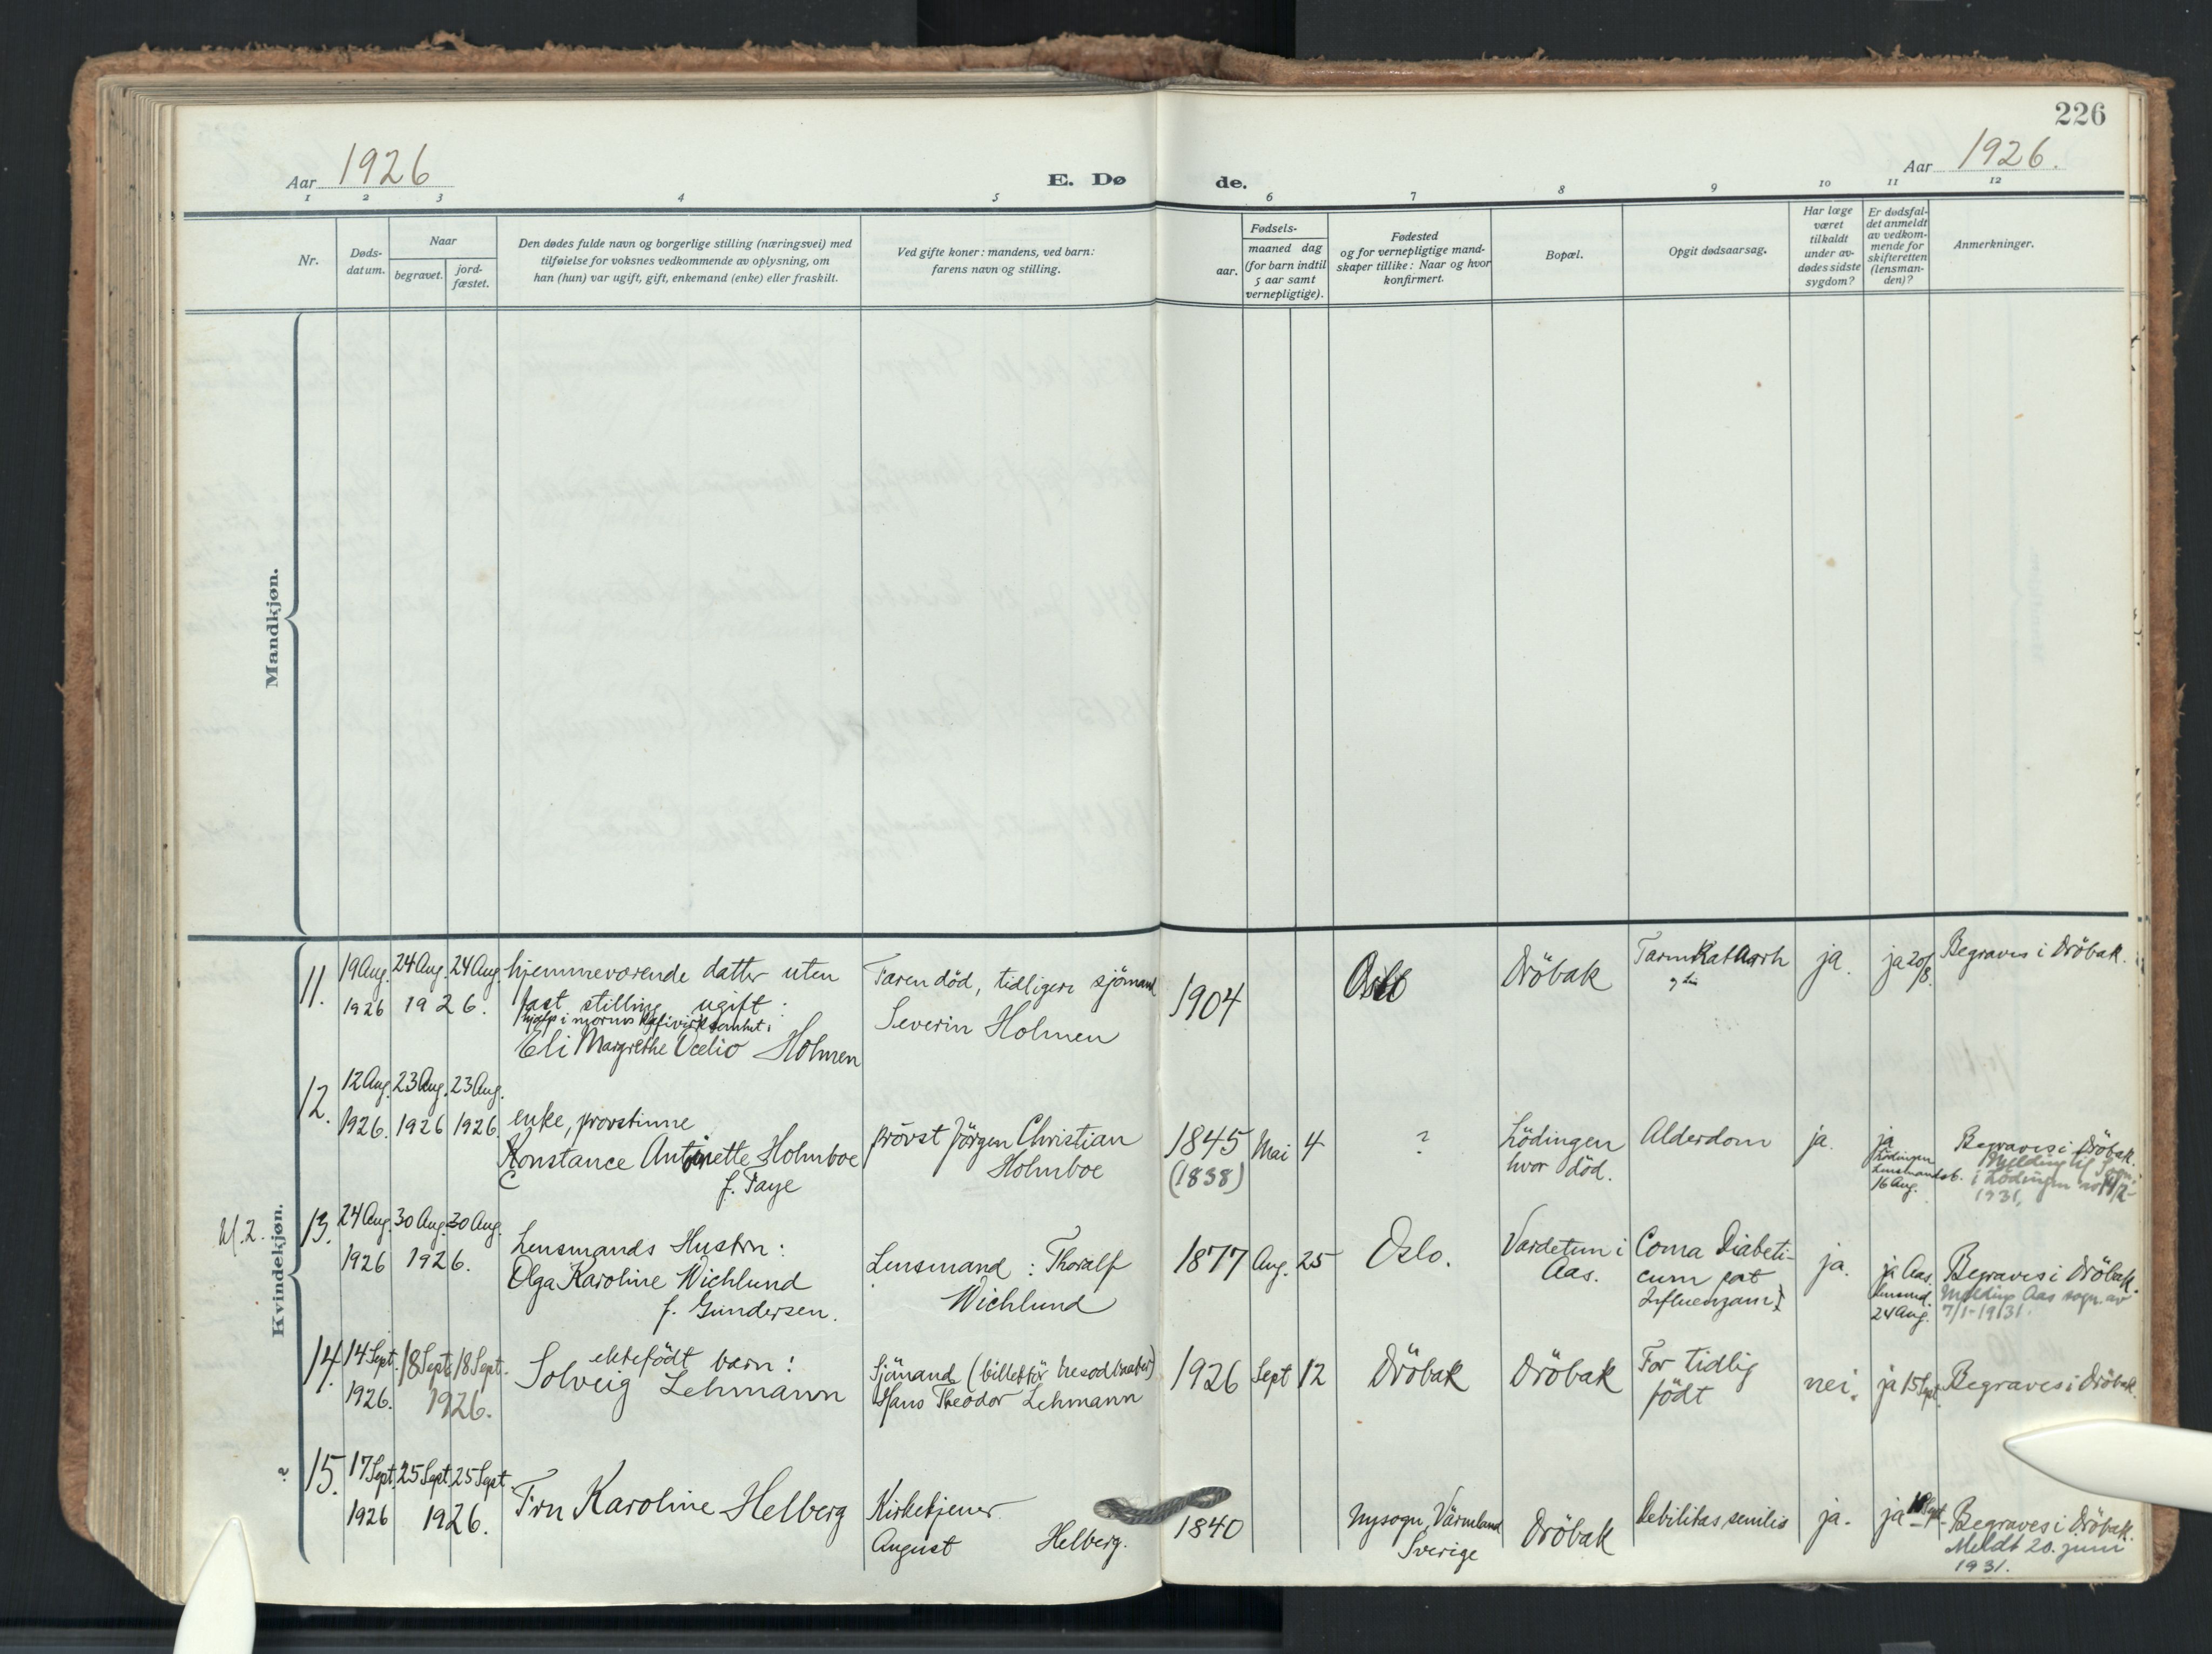 226
Aar 1926
E. Dø
de.
Aar 1926.
1 2 3 4 5 6 7 8 9 10 11 12
Nr.
Døds-
datum.
Naar
begravet.
jord-
fæstet.
Den dødes fulde navn og borgerlige stilling (næringsvei) med
tilføielse for voksnes vedkommende av oplysning, om
han (hun) var ugift, gift, enkemand (enke) eller fraskilt.
Ved gifte koner: mandens, ved barn:
farens navn og stilling.
Fødsels-
aar.
maaned dag
(for barn indtil
5 aar samt
vernepligtige).
Fødested
og for vernepligtige mand-
skaper tillike: Naar og hvor
konfirmert.
Bopæl.
Opgit dødsaarsag.
Har læge
været
tilkaldt
under av-
dødes sidste
sygdom?
Er dødsfal-
det anmeldt
av vedkom-
mende for
skifteretten
(lensman-
den)?
Anmerkninger.
Mandkjøn.
Kvindekjøn.
11.
19 Aug.
1926
24 Aug. 24 Aug.
1926.
hjemmeværende datter uten
fast stilling ugift.
hjalp i morens kafivirksomhet:
Eli Margrethe Holmen
Faren död, tidligere sjömand
Severin Holmen
1904
Dröbak
Tarmkatarrh
ja.
ja 20/8.
Begraves i Dröbak.
12.
12 Aug.
1926.
23 Aug.
1926
23 Aug.
1926
enke, provstinne
Konstance Antoinette Holmboe
C
f. Faye
prövst Jörgen Christian
Holmboe
1845
(1838)
Mai 4
?
Lödingen
hvor död.
Alderdom
ja.
ja
Lödingen
Lensmandsb.
16 Aug.
Begraves i Dröbak.
Melding til Sogn.
i Lödingen av 14/2-
1931.
13.
24 Aug.
1926
30 Aug. 30 Aug.
1926.
Lensmands Hustru:
Olga Karoline Wichlund
f. Gundersen.
Lensmand: Thoralf
Wichlund
1877 Aug. 25
Oslo.
Vardetun i
Aas.
Coma Diabeti-
cum pst
Influenzam
ja.
ja Aas.
lensmd.
24 Aug.
Begraves i Dröbak.
Melding Aas sogn. av
7/1-1931.
14.
14 Sept.
1926.
18 Sept. 18 Sept.
1926.
ektefödt barn:
Solveig Lehmann
Sjömand
Hans Theodor Lehmann
1926 Sept 12
Dröbak
Dröbak
For tidlig
födt
nei.
ja 15 Sept.
Begraves i Dröbak.
15.
17 Sept.
1926
25 Sept. 25 Sept.
1926.
Fru Karoline Helberg
Kirketjener
August Helberg.
1840
Nysogn, Värmland
Sverige
Dröbak
Debilitas senilis
ja.
ja 18 Sept.
Begraves i Dröbak.
Meldt 20. juni
1931.